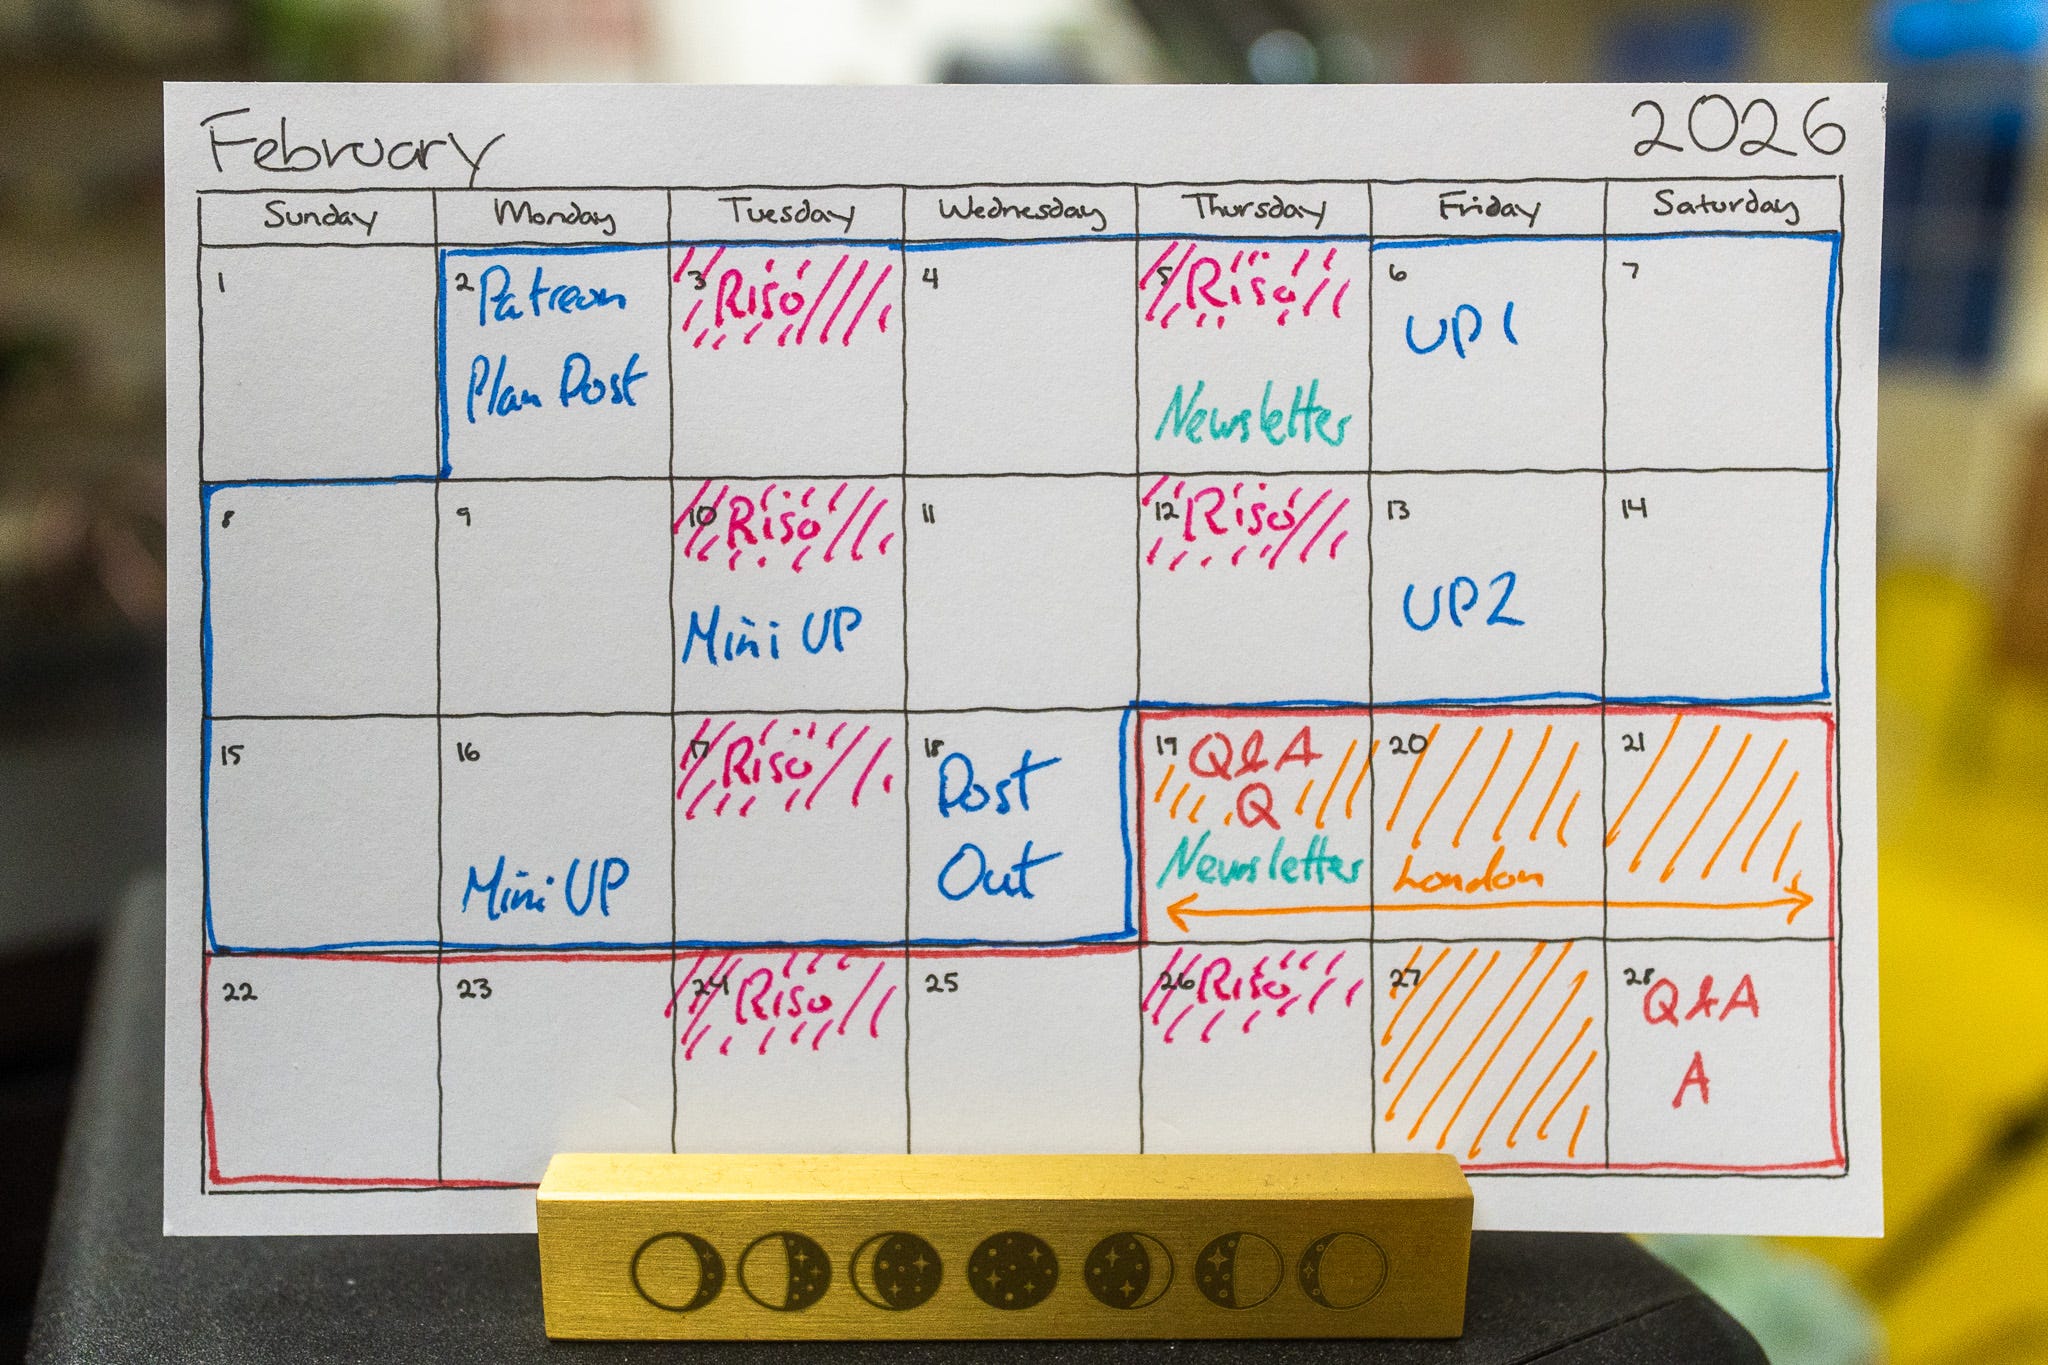 February 2026
Sunday Monday Tuesday Wednesday Thursday Friday Saturday
1 2 Patreon 3 Riso 4 5 Riso 6 7
UP1
Plan Post Newsletter
8 9 10 Riso 11 12 Riso 13 14
Mini UP UP2
15 16 17 Riso 18 Post 19 Q&A 20 21
Q
Mini UP Out Newsletter London
22 23 24 Riso 25 26 Riso 27 28 Q&A
A